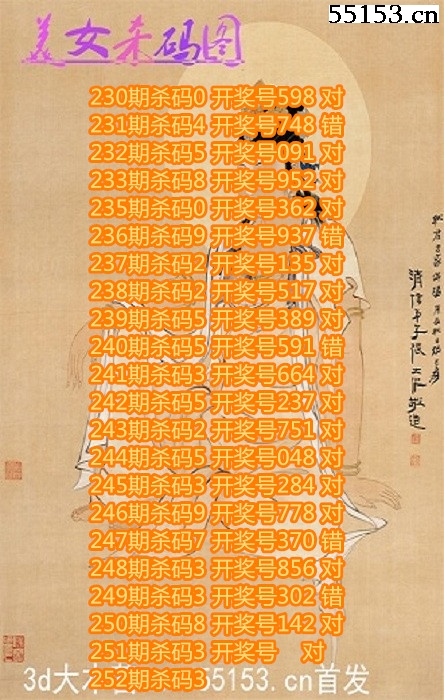 55153.cn
美女杀码图
230期杀码0 开奖号598 对
231期杀码4 开奖号748 错
232期杀码5 开奖号091 对
233期杀码8 开奖号952 对
235期杀码0 开奖号362 对
236期杀码9 开奖号937 错
237期杀码2 开奖号135 对
238期杀码2 开奖号517 对
239期杀码5 开奖号389 对
240期杀码5 开奖号591 错
241期杀码3 开奖号664 对
242期杀码5 开奖号237 对
243期杀码2 开奖号751 对
244期杀码5 开奖号048 对
245期杀码3 开奖号284 对
246期杀码9 开奖号778 对
247期杀码7 开奖号370 错
248期杀码3 开奖号856 对
249期杀码3 开奖号302 错
250期杀码8 开奖号142 对
251期杀码3 开奖号 对
252期杀码3
3d大本 55153.cn首发